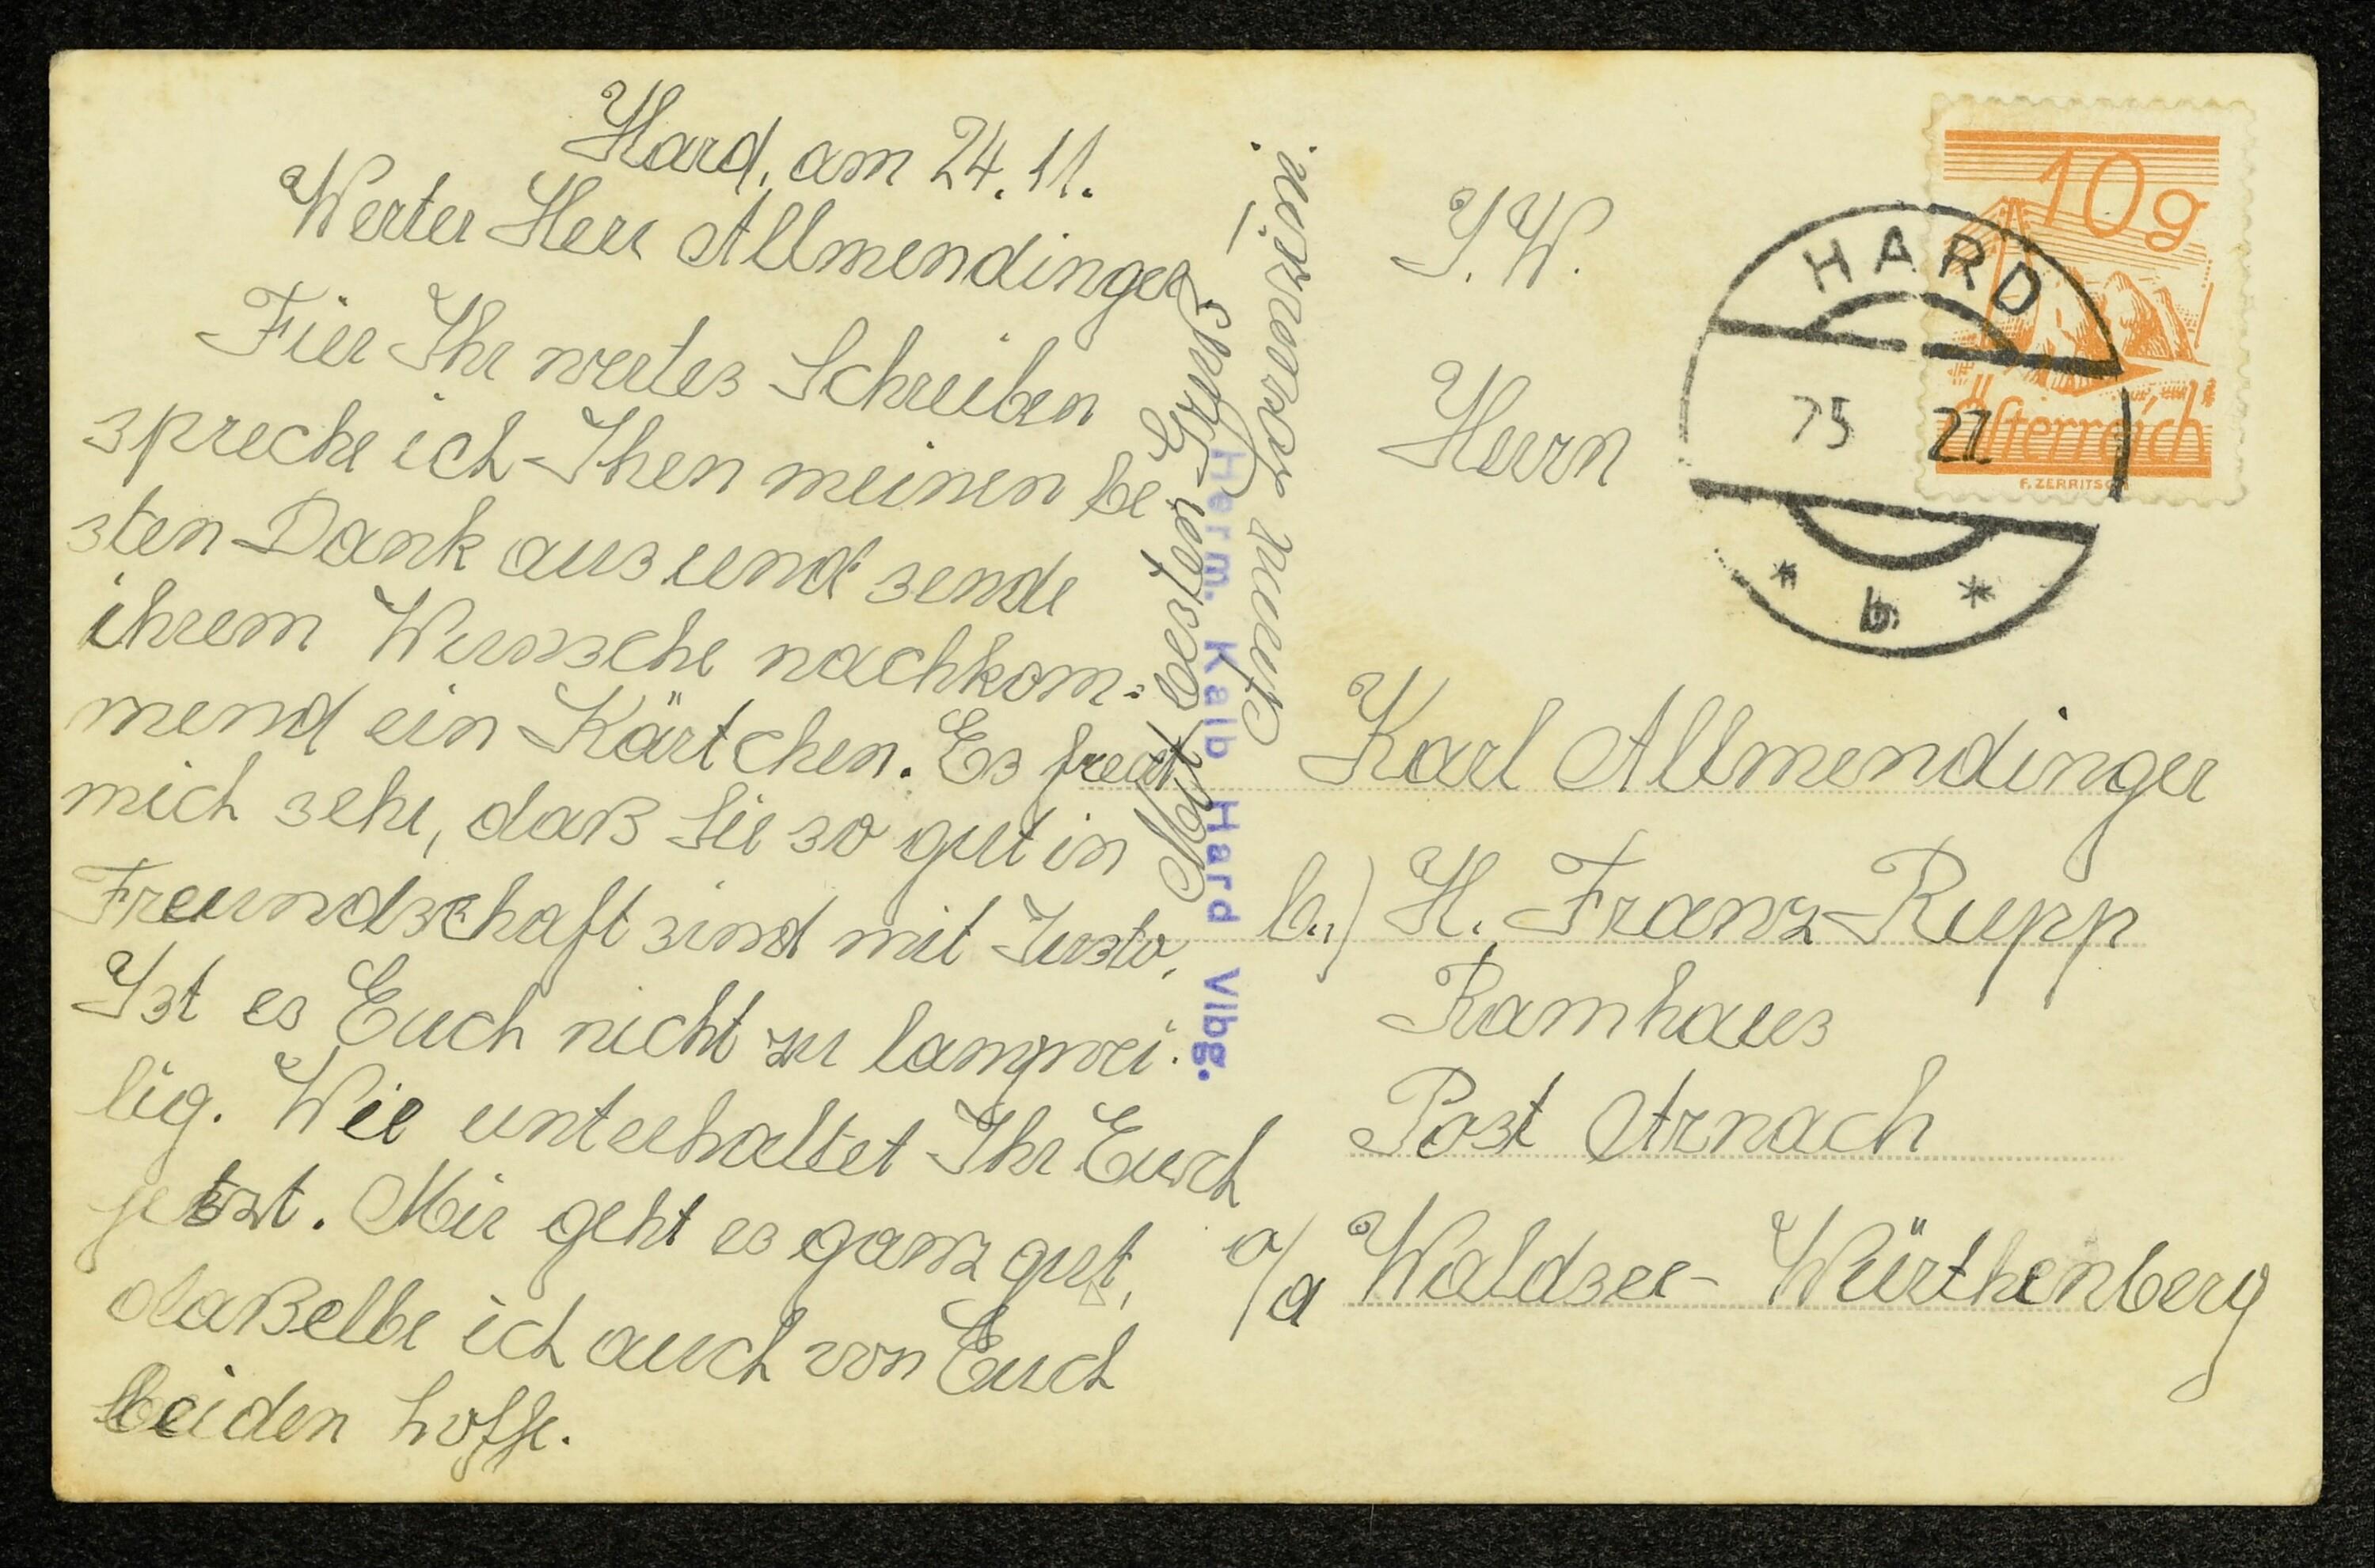 Hard, am 24. 11.
Werter Herr Allmendinger.
Fier Ihr wertes Schreiben
spreche ich Ihen meinen be
sten Dank aus und sende
ihrem Wunsche nachkom=
mend ein Kärtchen. Es freut
mich sehr, daß Sie so gut in
Freundschaft sind mit Justo.
Ist es Euch nicht zu langwei-
lig. Wie unterhaltet Ihr Euch
jetzt. Mir geht es ganz gut,
daßelbe ich auch von Euch
beiden hoffe.
Mit besten Gruß
Herm. Kalb Hard Vlbg.
S. W.
Herrn
Karl Allmendinger
b.) H. Franz Rupp
Ramhaus
Post Arnach
a/a Waldsee - Würthenberg
10g
Österreich
F. ZERRITSCH
HARD
* b *